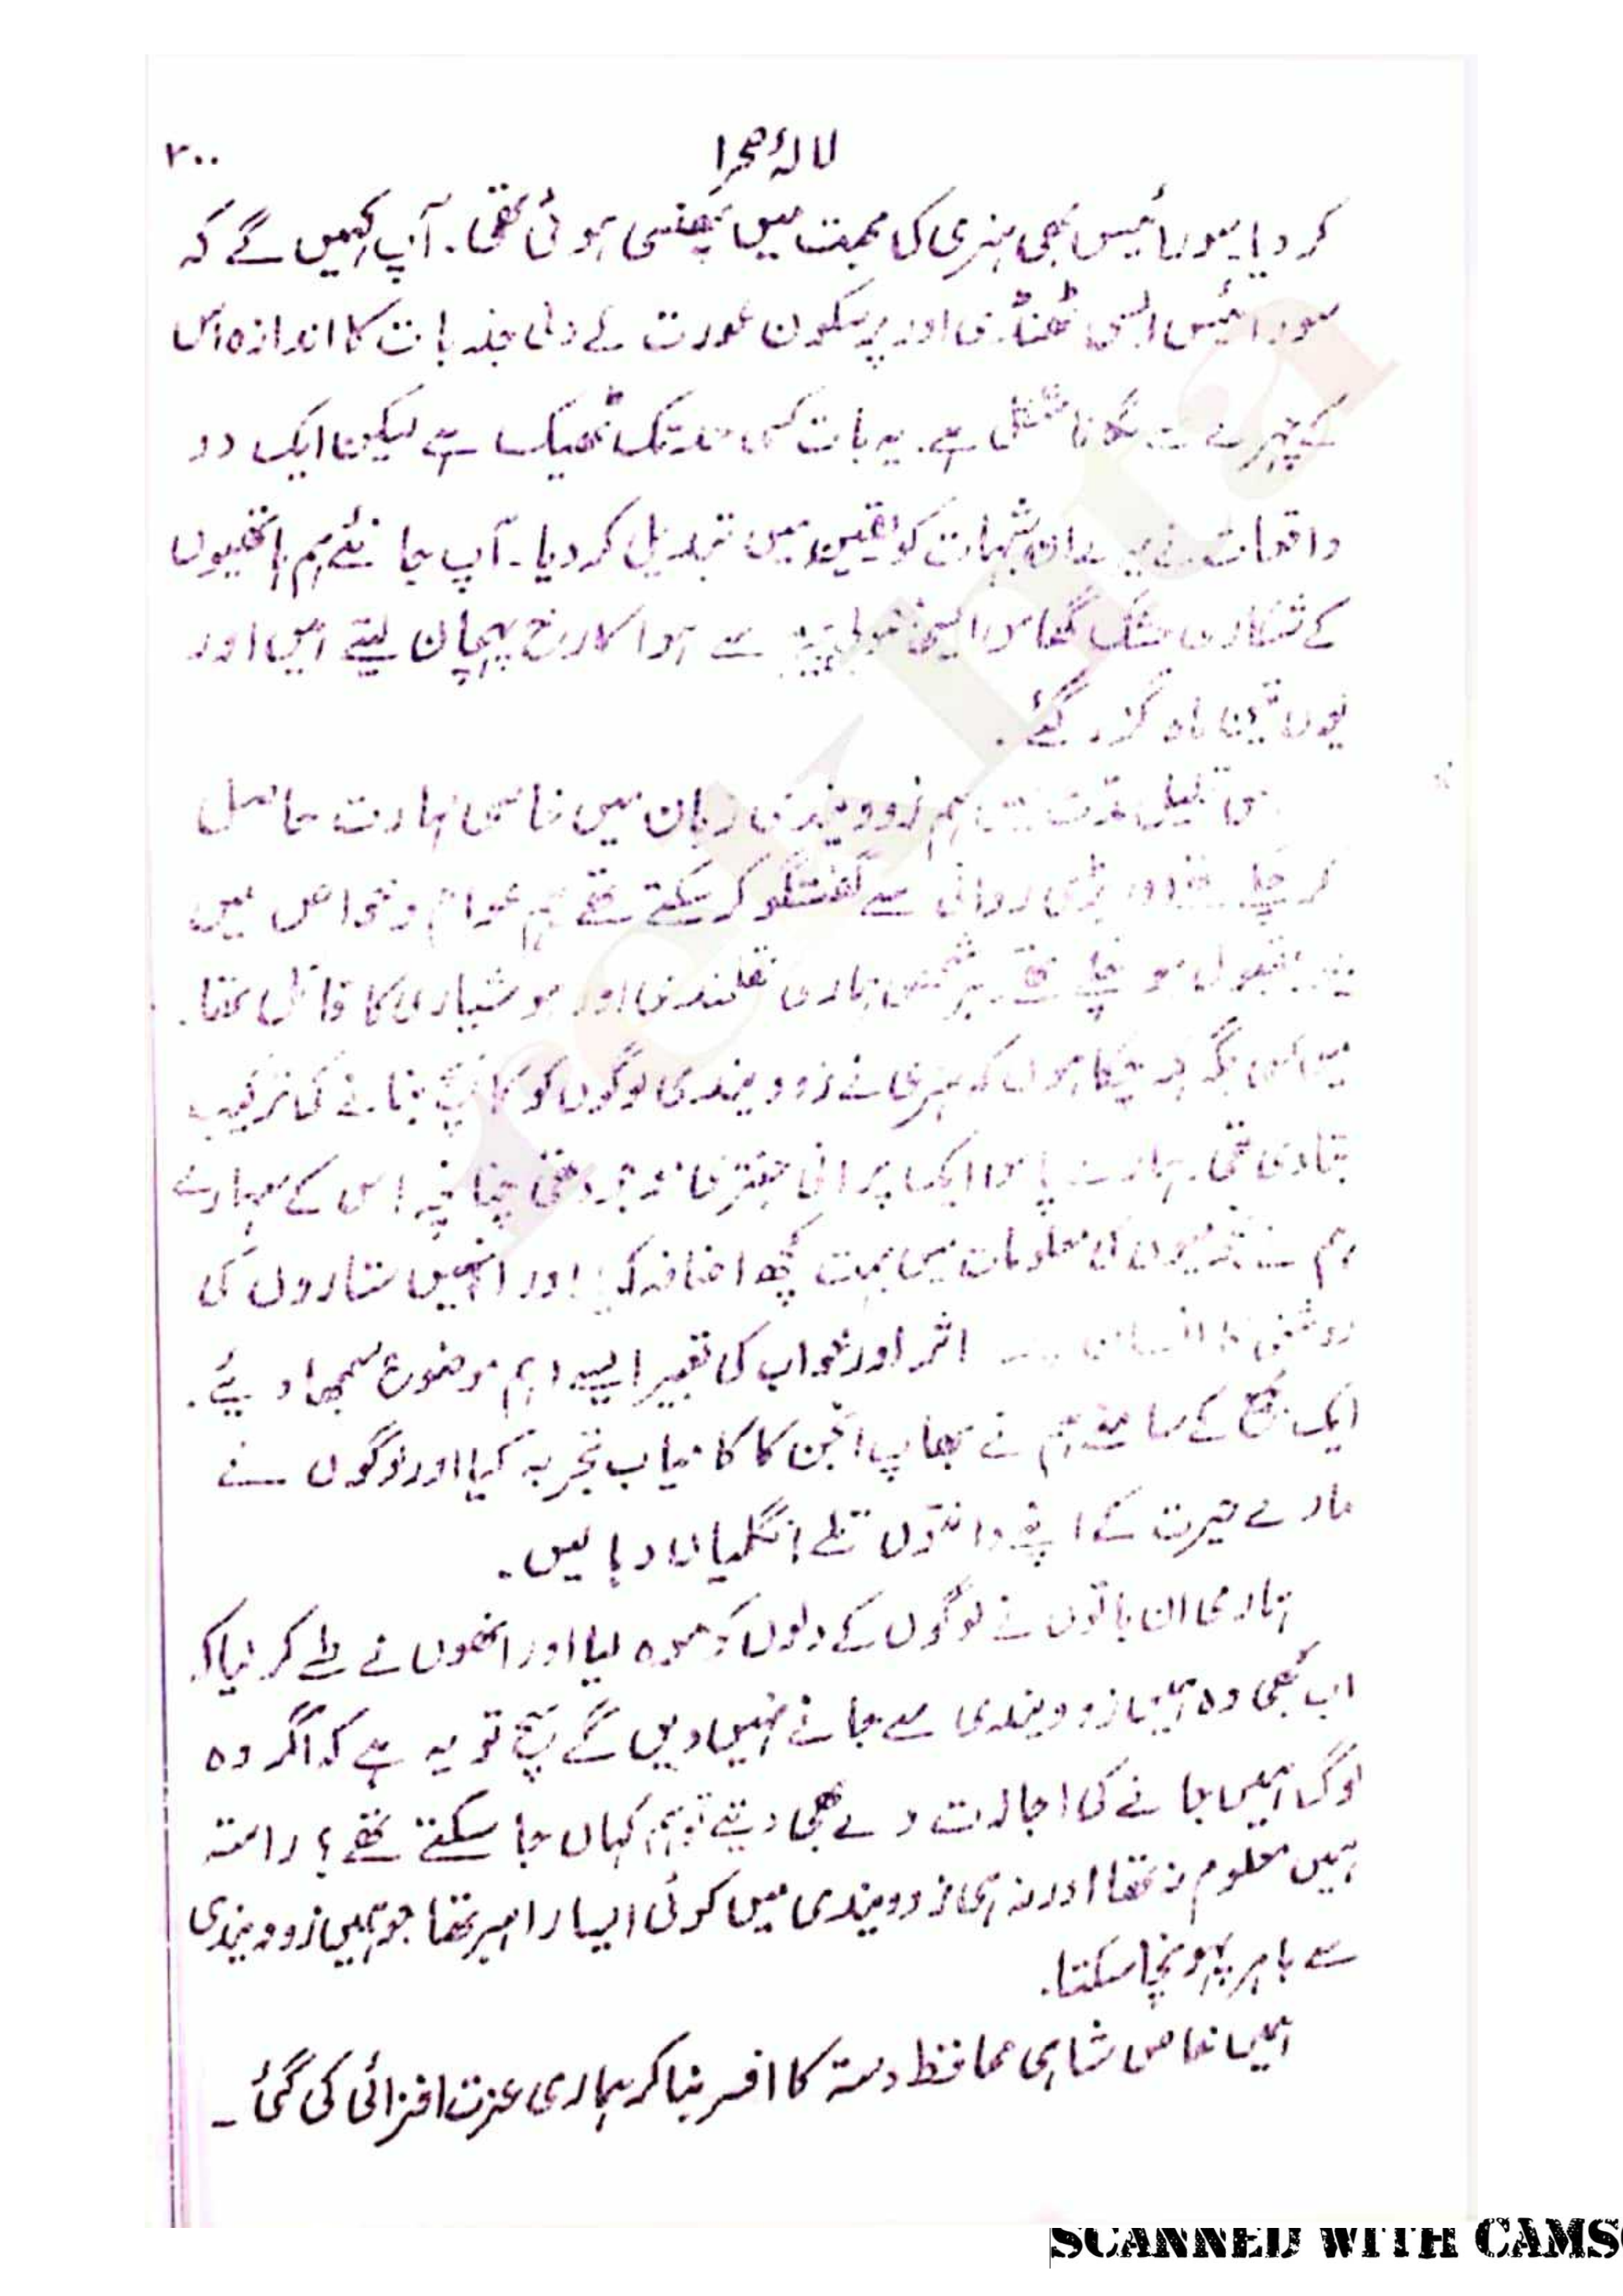 لالۂ صحرا
۲۰۰
کر دیا۔ سورائیس بھی ہنری کی محبت میں پھنسی ہوئی تھی۔ آپ کہیں گے کہ
سورائیس ایسی ٹھنڈی اور پرسکون عورت کے دلی جذبات کا اندازہ اس
کے چہرے سے لگانا مشکل ہے۔ یہ بات کسی حد تک ٹھیک ہے لیکن ایک دو
واقعات نے میرے ان شبہات کو یقین میں تبدیل کر دیا۔ آپ جانئے ہم ہاتھیوں
کے شکاری خشک گھاس ایسی معمولی چیز سے ہوا کا رخ پہچان لیتے ہیں اور
یوں تین ماہ گزر گئے۔
اس قلیل مدت میں ہم زوویندی زبان میں خاصی مہارت حاصل
کر چکے تھے اور بڑی روانی سے گفتگو کر سکتے تھے ہم عوام و خواص میں
مقبول ہو چکے تھے۔ ہر شخص ہماری عقلمندی اور ہوشیاری کا قائل تھا۔
میں کسی جگہ کہہ چکا ہوں کہ ہنری نے زوویندی لوگوں کو کانچ بنانے کی ترکیب
بتا دی تھی۔ ہمارے پاس ایک پرانی جنتری موجود تھی چنانچہ اس کے سہارے
ہم نے نجومیوں کی معلومات میں بہت کچھ اضافہ کیا اور انہیں ستاروں کی
روشنی کا انسان پر اثر اور خواب کی تعبیر ایسے اہم موضوع سمجھا دیئے۔
ایک مجمع کے سامنے ہم نے بھاپ انجن کا کامیاب تجربہ کیا اور لوگوں نے
مارے حیرت کے اپنے دانتوں تلے انگلیاں دبا لیں۔
ہماری ان باتوں نے لوگوں کے دلوں کو موہ لیا اور انھوں نے طے کر لیا کہ
اب کبھی وہ ہمیں زوویندی سے جانے نہیں دیں گے سچ تو یہ ہے کہ اگر وہ
لوگ ہمیں جانے کی اجازت دے بھی دیتے تو ہم کہاں جا سکتے تھے؟ راستہ
ہمیں معلوم نہ تھا اور نہ ہی زوویندی میں کوئی ایسا راہبر تھا جو ہمیں زوویندی
سے باہر پہونچا سکتا۔
ہمیں خاص شاہی محافظ دستہ کا افسر بنا کر ہماری عزت افزائی کی گئی۔
rekhta
SCANNED WITH CAMS